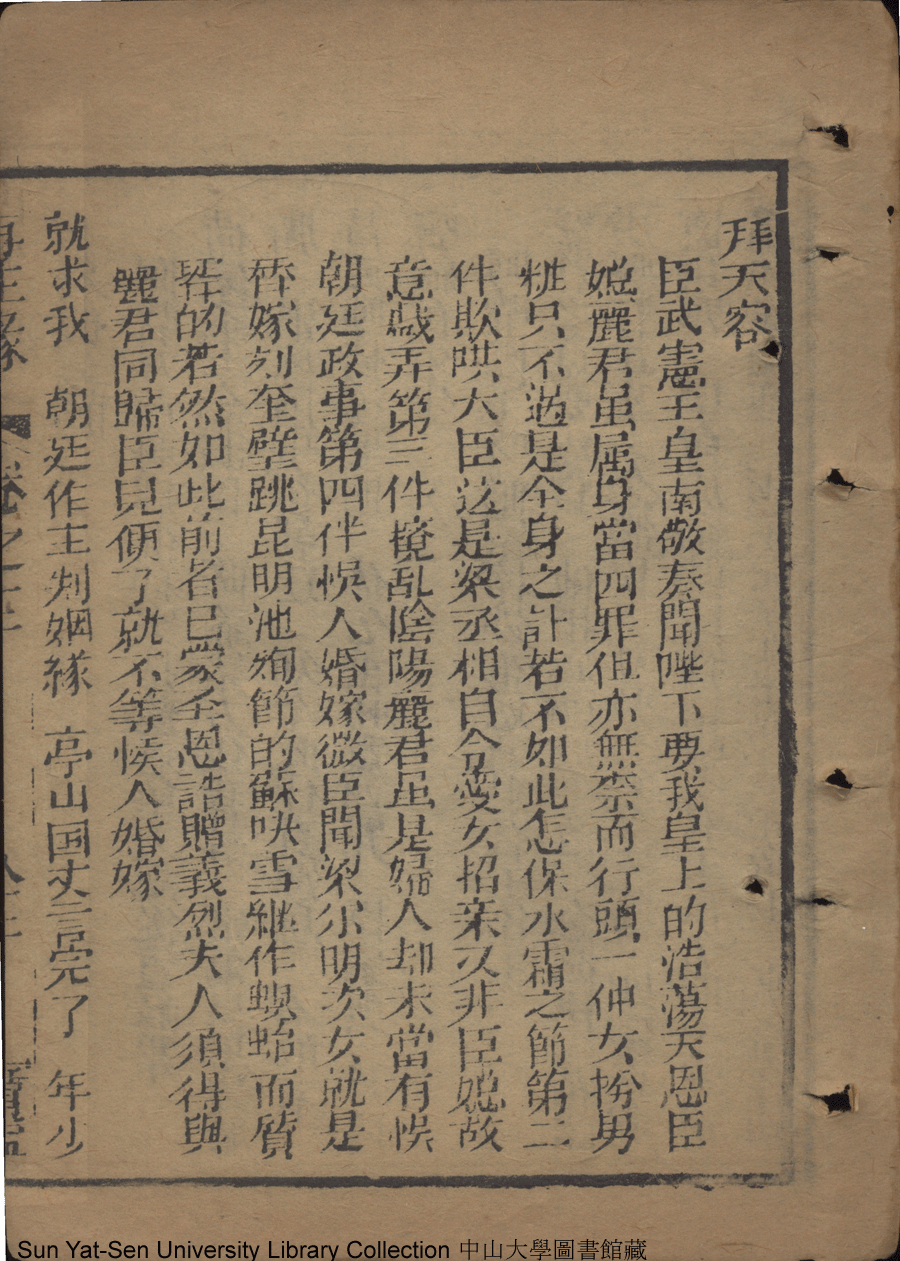 拜天容
臣武憲王皇南敬奏聞陛下要我皇上的浩蕩天恩臣
媳麗君虽属身當四罪但亦無奈而行頭一件女扮男
粧只不過是全身之計若不如此怎保水霜之節第二
件欺哄大臣这是梁丞相自令愛女招亲又非臣媳故
意戯弄第三件攪乱陰陽麗君虽是婦人却未當有悮
朝廷政事第四件悮人婚嫁微臣聞梁尔明次女就是
香嫁刘奎璧跳昆明池殉節的蘇映雪継作螟蛉而質
的若然如此前者已蒙圣恩誥贈義烈夫人須得與
麗君同歸臣兒便了就不等悮人婚嫁
就求我 朝廷作主判姻緣 亭山国丈言完了 年少
再生緣 卷之十
Sun Yat-Sen University Library Collection 中山大學圖書館藏